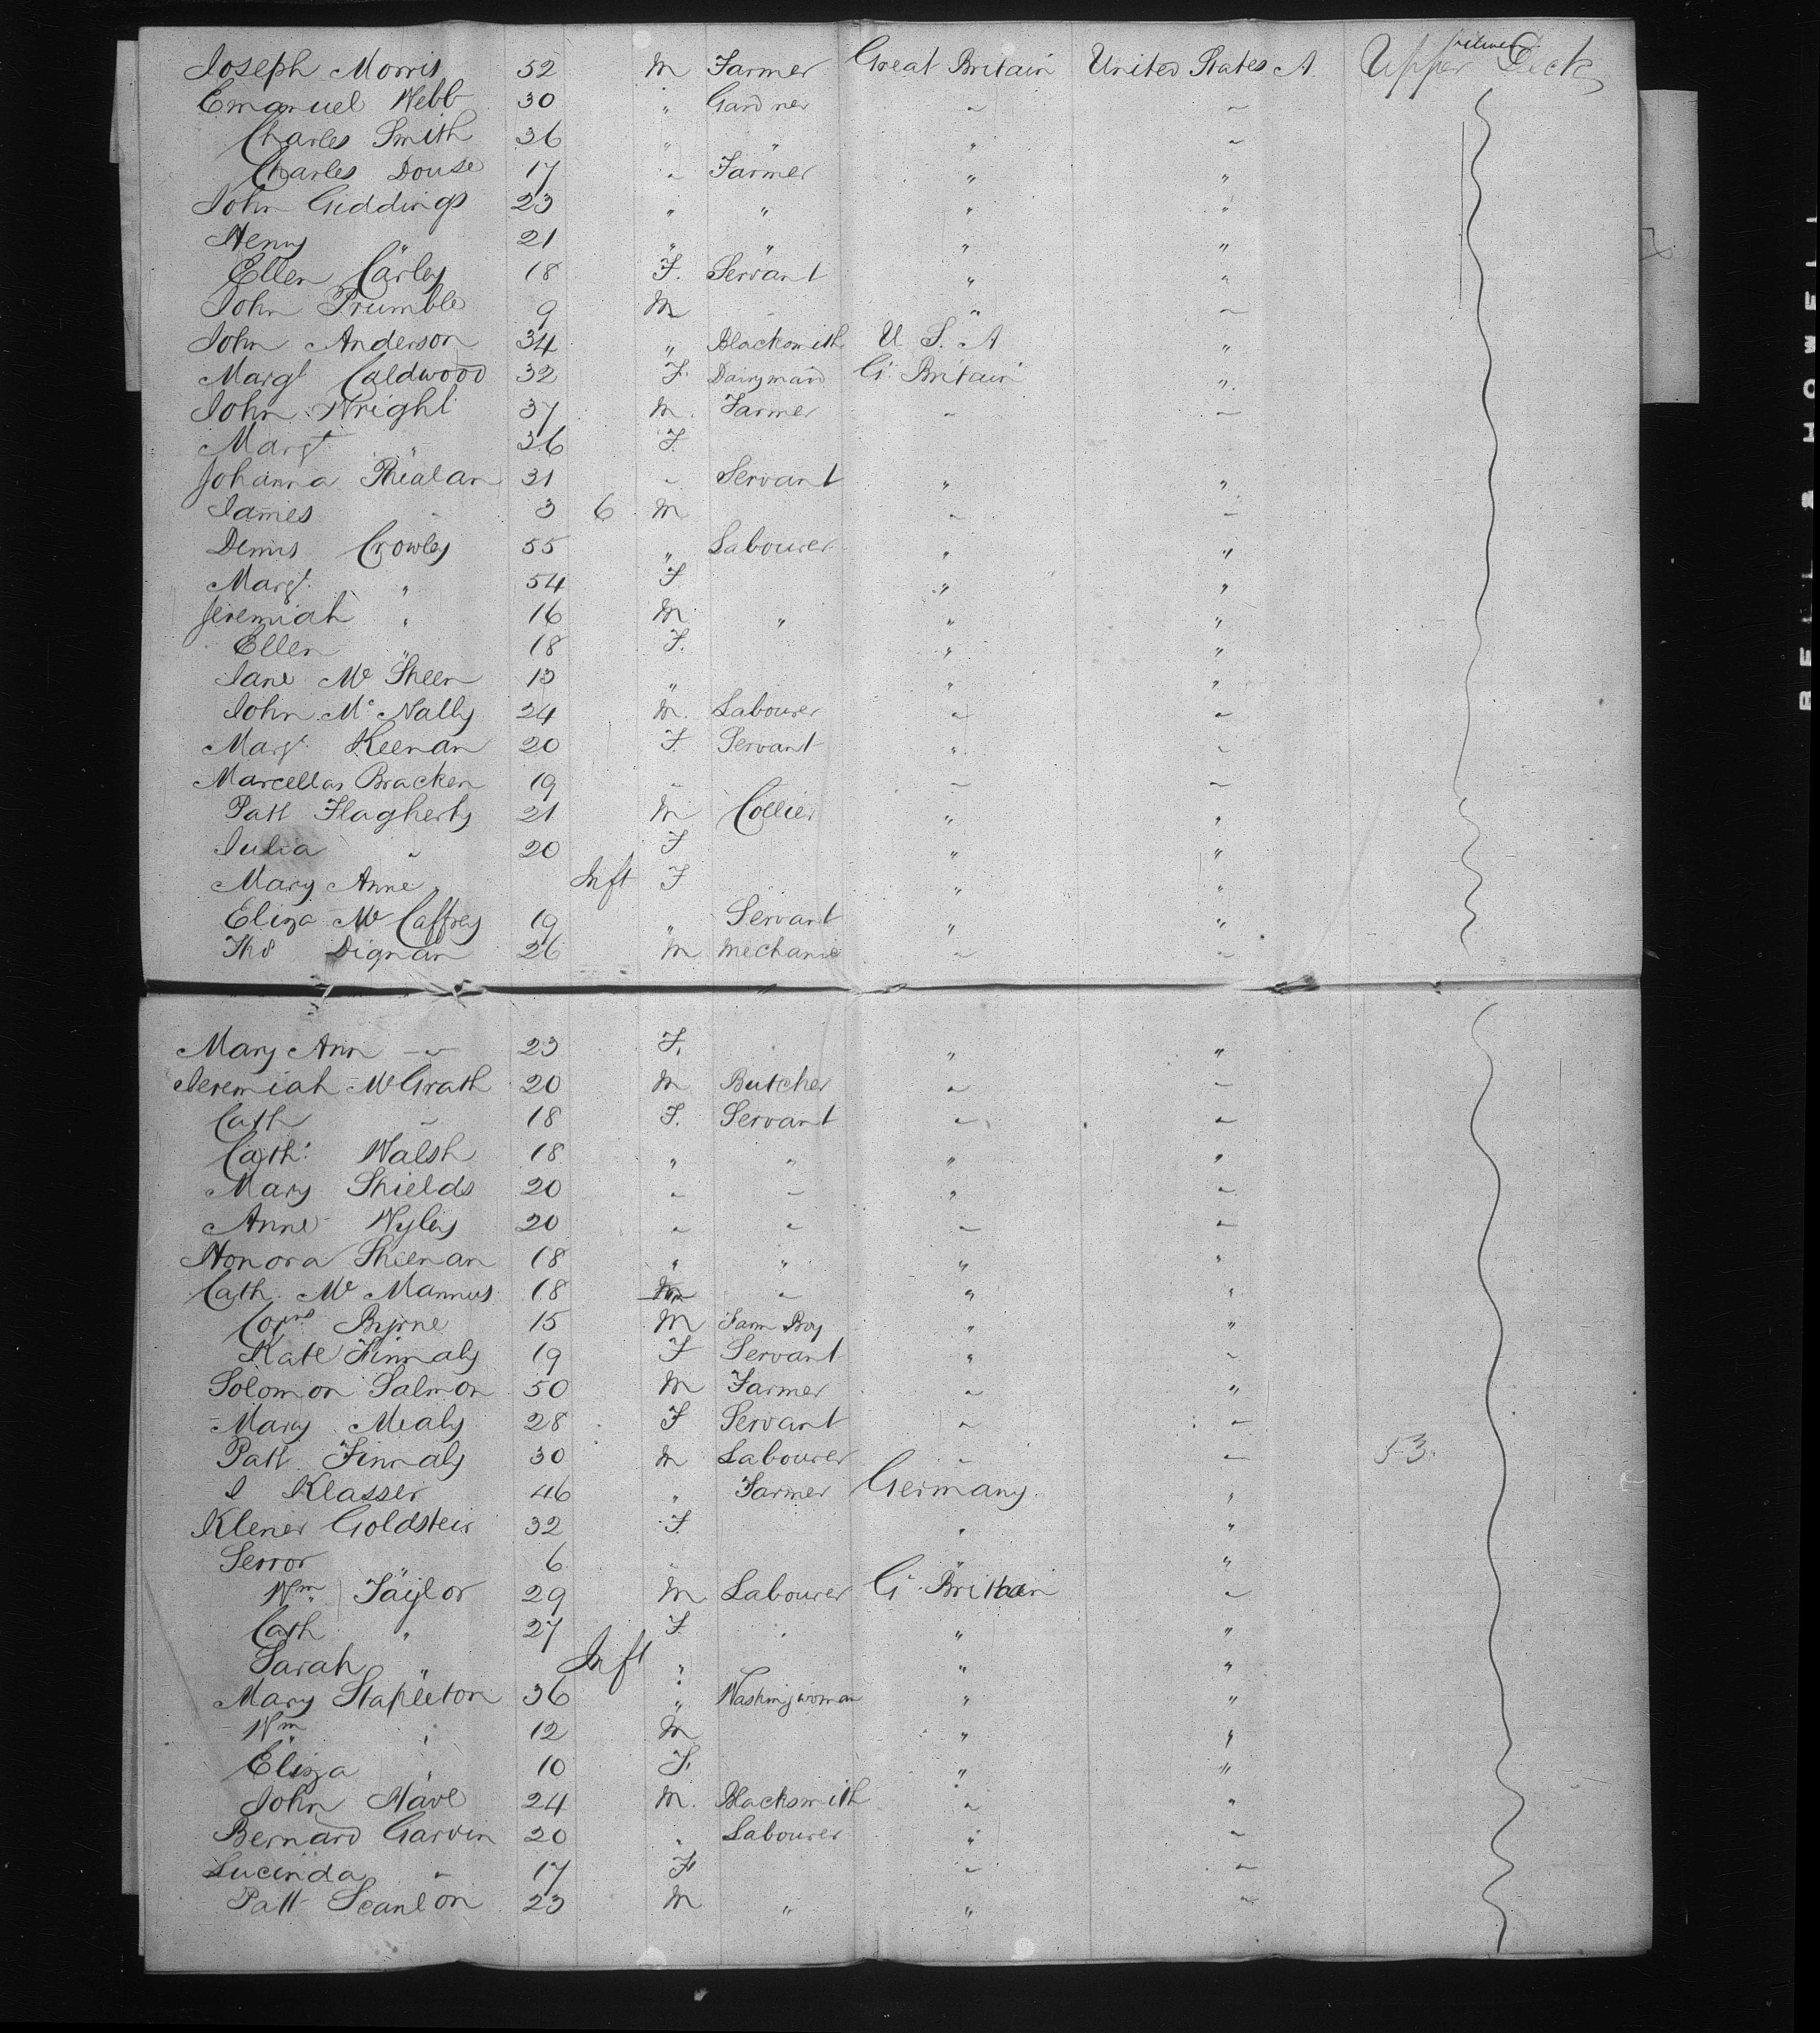 Joseph Morris 52 M Farmer Great Britain United States A. Upper Deck
Emanuel Webb 30 " Gardner " "
Charles Smith 36 " " " "
Charles Douse 17 " Farmer " "
John Giddings 23 " " " "
Henry " 21 " " " "
Ellen Carley 18 F. Servant " "
John Prumble 9 M " "
John Anderson 34 " Blacksmith U. S. A "
Margt Caldwood 32 F. Dairymaid Gt. Britain "
John Wright 37 M. Farmer " "
Margt " 36 F.
Johanna Phealan 31 " Servant " "
James " 3 6 M " "
Denis Crowley 55 " Labourer " "
Margt. " 54 F " "
Jeremiah " 16 M " " "
Ellen " 18 F. " "
Jane Mc Sheen 13 " " "
John Mc Nally 24 M. Labourer " "
Margt. Keenan 20 F. Servant " "
Marcellas Bracken 19 " " "
Patt Flagherty 21 M Collier " "
Julia " 20 F " "
Mary Anne " Inft F " "
Eliza Mc Caffrey 19 " Servant " "
Ths Dignan 26 M Mechanic " "
Mary Ann " 23 F. " "
Jeremiah McGrath 20 M Butcher " "
Cath " 18 F. Servant " "
Cath: Walsh 18 " " " "
Mary Shields 20 " " " "
Anne Wyley 20 " " " "
Honora Sheenan 18 " " " "
Cath. Mc Mannus 18 " " "
Byrne 15 M Farm Boy " "
Kate Finnaly 19 F Servant " "
Solomon Salmon 50 M Farmer " "
Mary Mealy 28 F Servant " "
Patt. Finnaly 30 M Labourer " " 53
I Klasser 46 " Farmer Germany "
Klener Goldstein 32 F. " "
Serror 6 " " "
Wm. Taylor 29 M Labourer Gt. Britain "
Cath " 27 F. " " "
Sarah " Inft " " "
Mary Stapleton 36 " Washingwoman " "
Wm " 12 M " "
Eliza " 10 F. " "
John Have 24 M. Blacksmith " "
Bernard Garvin 20 " Labourer " "
Lucinda " 17 F " "
Patt Scanlon 23 M " " "
BELL & HOWELL